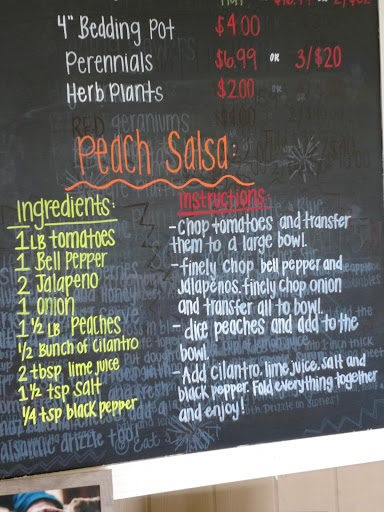 4" Bedding Pot $4.00
Perennials $6.99 or 3/$20
Herb Plants $2.00
Peach Salsa:
Ingredients:
1 LB tomatoes
1 Bell Pepper
2 Jalapeno
1 onion
1 1/2 LB Peaches
1/2 Bunch of Cilantro
2 tbsp lime juice
1 1/2 tsp salt
1/4 tsp black pepper
Instructions:
- Chop tomatoes and transfer
them to a large bowl.
- finely chop bell pepper and
jalapenos. finely chop onion
and transfer all to bowl.
- dice peaches and add to the
bowl.
- Add cilantro, lime juice, salt and
black pepper. Fold everything together
and enjoy!